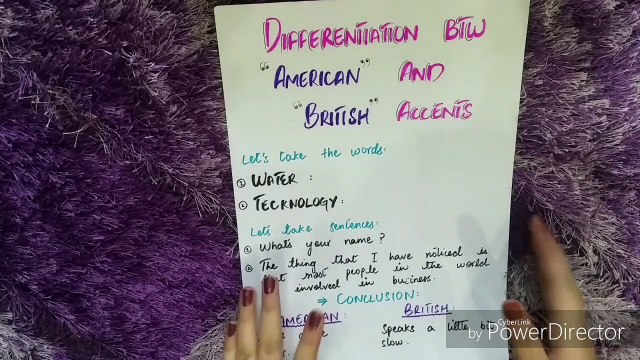 DIFFERENTIATION BTW
"AMERICAN" AND
"BRITISH" ACCENTS
Let's take the words:
① WATER :
② TECKNOLOGY:
Let's take sentences:
① What's your name?
② The thing that I have noticed is
most people in the world
involved in business.
⇒ CONCLUSION:
AMERICAN: BRITISH:
Speaks a little bit
slow.
CyberLink
by PowerDirector